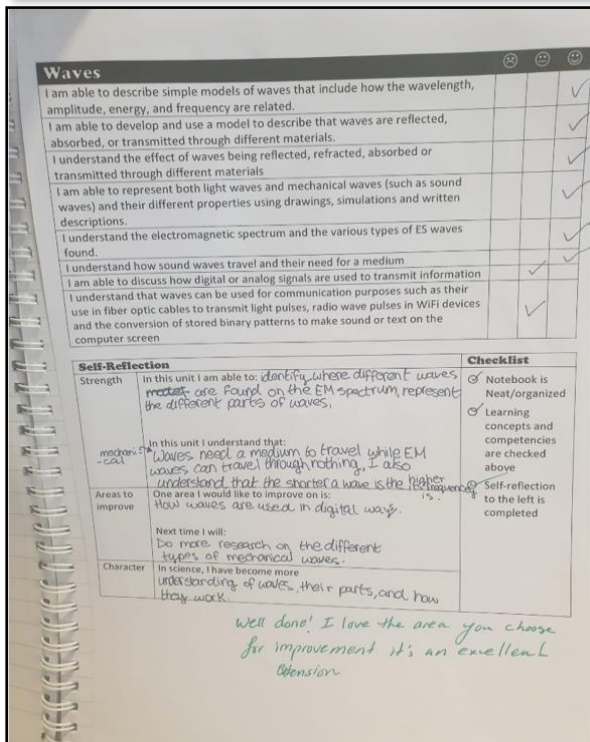 Waves
I am able to describe simple models of waves that include how the wavelength,
amplitude, energy, and frequency are related.
I am able to develop and use a model to describe that waves are reflected,
absorbed, or transmitted through different materials.
I understand the effect of waves being reflected, refracted, absorbed or
transmitted through different materials
I am able to represent both light waves and mechanical waves (such as sound
waves) and their different properties using drawings, simulations and written
descriptions.
I understand the electromagnetic spectrum and the various types of ES waves
found.
I understand how sound waves travel and their need for a medium
I am able to discuss how digital or analog signals are used to transmit information
I understand that waves can be used for communication purposes such as their
use in fiber optic cables to transmit light pulses, radio wave pulses in WiFi devices
and the conversion of stored binary patterns to make sound or text on the
computer screen
Self-Reflection
Checklist
Strength
In this unit I am able to: identify where different waves
are found on the EM spectrum, represent
the different parts of waves,
In this unit I understand that:
mechani
-cal
Waves need a medium to travel while EM
waves can travel through nothing, I also
understand that the shorter a wave is the higher
frequency
is.
Areas to
improve
One area I would like to improve on is:
How waves are used in digital ways.
Next time I will:
Do more research on the different
types of mechanical waves.
Character
In science, I have become more
understanding of waves, their parts, and how
they work.
Notebook is
Neat/organized
Learning
concepts and
competencies
are checked
above
Self-reflection
to the left is
completed
Well done! I love the area you choose
for improvement it's an excellent